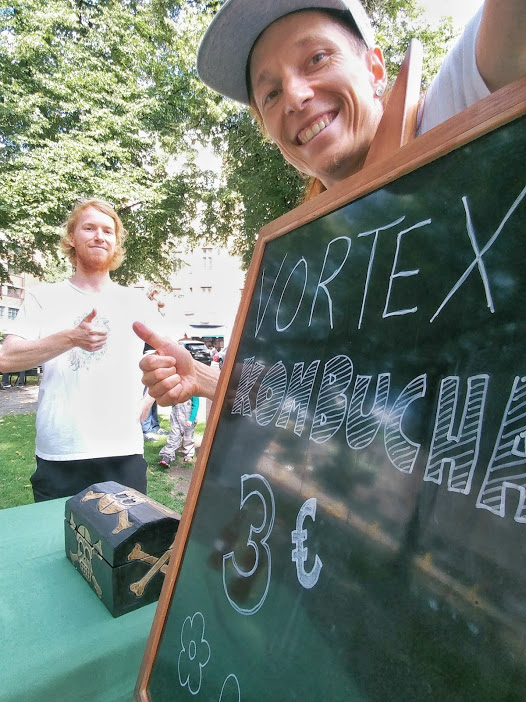 VORTEX
KOMBUCHA
3€